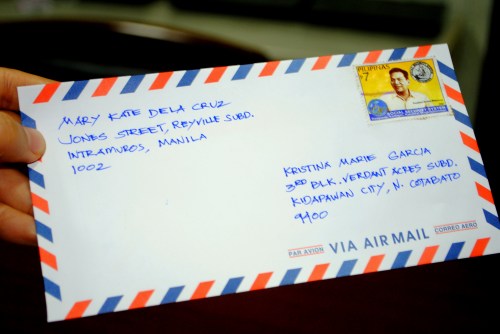 MARY KATE DELA CRUZ
JONES STREET, REYVILLE SUBD.
INTRAMUROS, MANILA
1002
PILIPINAS
7
KRISTINA MARIE GARCIA
3RD BLK. VERDANT ACRES SUBD.
KIDAPAWAN CITY, N. COTABATO
9400
PAR AVION VIA AIR MAIL CORREO AEREO